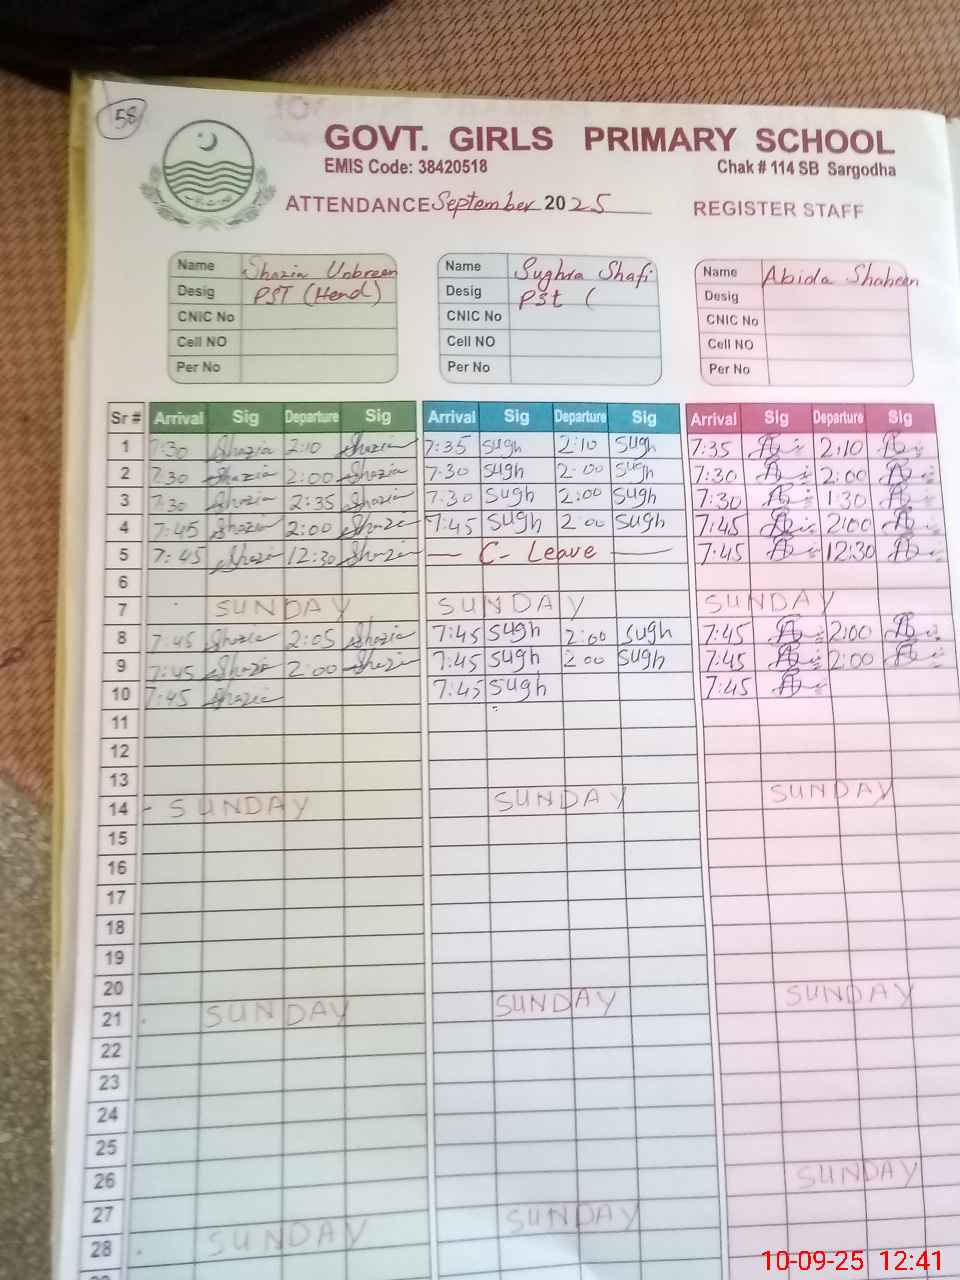 58
GOVT. GIRLS PRIMARY SCHOOL
EMIS Code: 38420518 Chak # 114 SB Sargodha
ATTENDANCE September 2025 REGISTER STAFF
Name Shazia Unbreen Name Sughra Shafi Name Abida Shaheen
Desig PST (Head) Desig Pst ( Desig
CNIC No CNIC No CNIC No
Cell NO Cell NO Cell NO
Per No Per No Per No
Sr # Arrival Sig Departure Sig Arrival Sig Departure Sig Arrival Sig Departure Sig
1 7:30 Shazia 2:10 Shazia 7:35 Sugh 2:10 Sugh 7:35 2:10
2 7:30 Shazia 2:00 Shazia 7:30 Sugh 2:00 Sugh 7:30 2:00
3 7:30 Shazia 2:35 Shazia 7:30 Sugh 2:00 Sugh 7:30 1:30
4 7:45 Shazia 2:00 Shazia 7:45 Sugh 2:00 Sugh 7:45 2:00
5 7:45 Shazia 12:30 Shazia — C- Leave — 7:45 12:30
6
7 SUNDAY SUNDAY SUNDAY
8 7:45 Shazia 2:05 Shazia 7:45 Sugh 2:00 Sugh 7:45 2:00
9 7:45 Shazia 2:00 Shazia 7:45 Sugh 2:00 Sugh 7:45 2:00
10 7:45 Shazia 7:45 Sugh 7:45
11
12
13
14 - SUNDAY SUNDAY SUNDAY
15
16
17
18
19
20
21 SUNDAY SUNDAY SUNDAY
22
23
24
25
26 SUNDAY
27 SUNDAY
28 SUNDAY
10-09-25 12:41